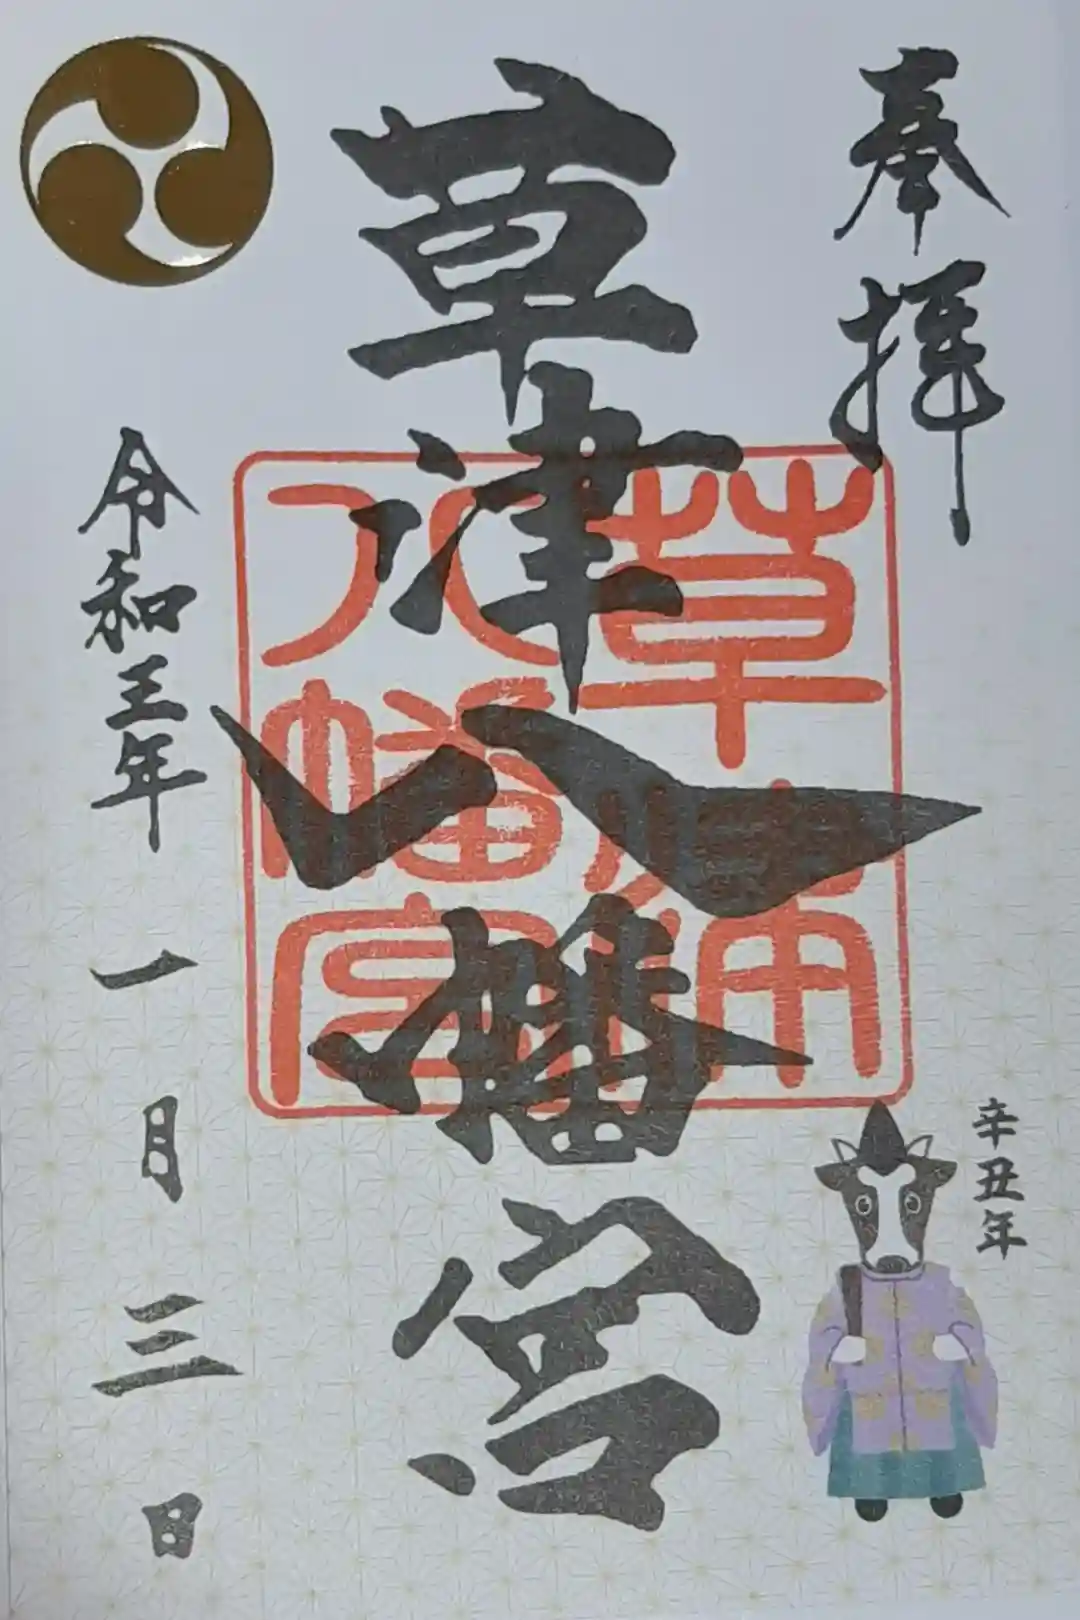 奉拝
草津八幡宮
草津
八幡宮
辛丑年
令和三年 一月三日